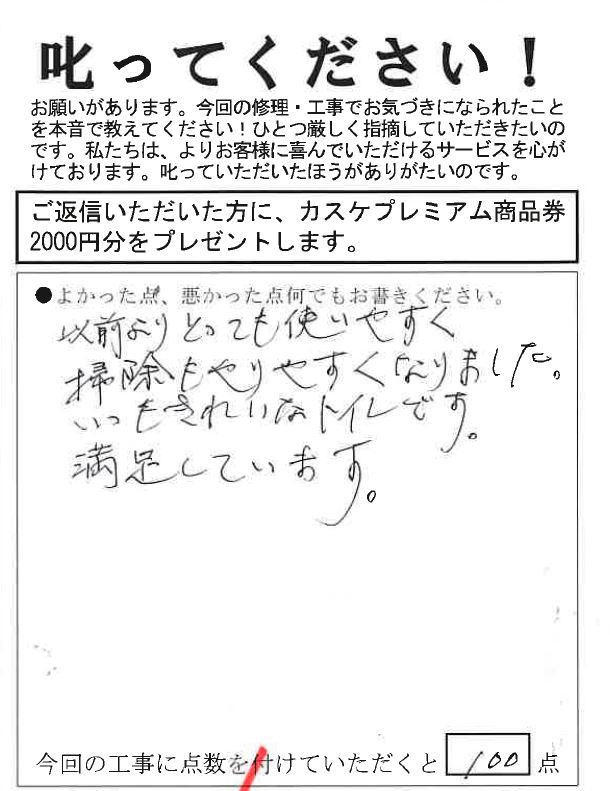 叱ってください！
お願いがあります。今回の修理・工事でお気づきになられたこと
を本音で教えてください！ひとつ厳しく指摘していただきたいの
です。私たちは、よりお客様に喜んでいただけるサービスを心が
けております。叱っていただいたほうがありがたいのです。
ご返信いただいた方に、カスケプレミアム商品券
2000円分をプレゼントします。
●よかった点、悪かった点何でもお書きください。
以前よりとっても使いやすく
掃除もやりやすくなりました。
いつもきれいなトイレです。
満足しています。
今回の工事に点数を付けていただくと 100 点